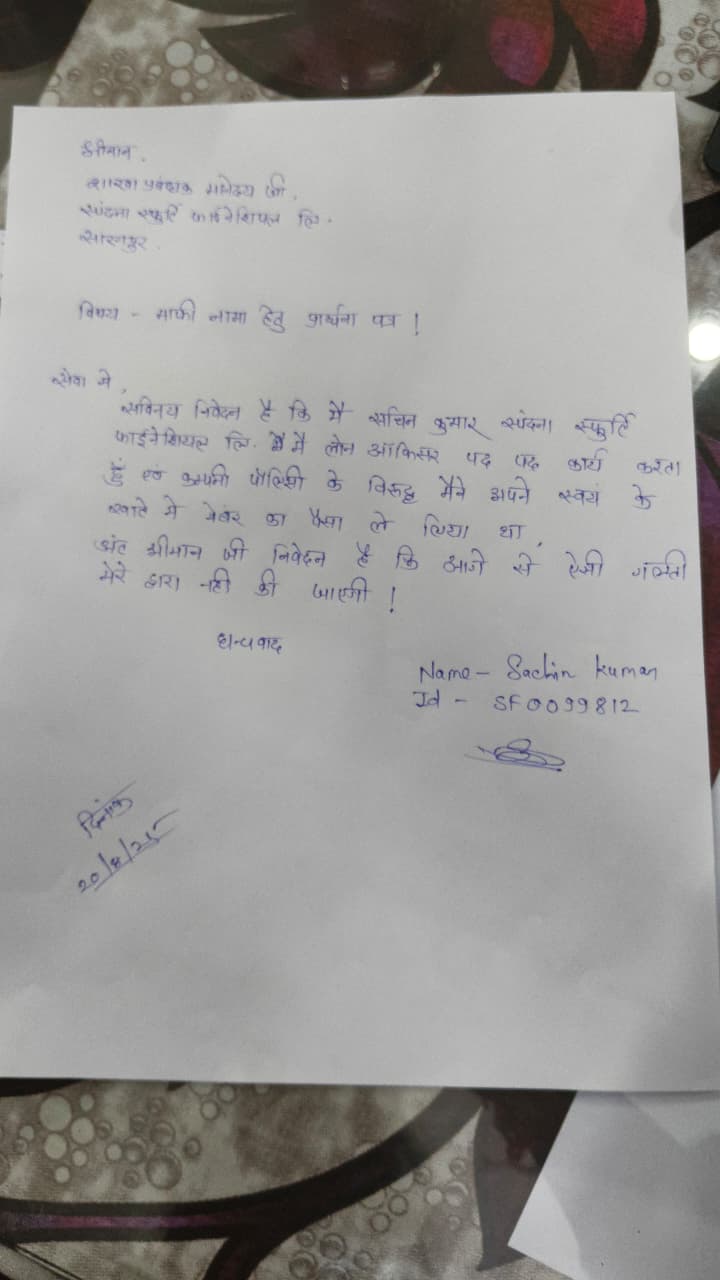 श्रीमान.
शाखा प्रबंधक महोदय जी.
स्पंदना स्फुर्ति फाईनेंशियल लि.
सारनपुर.
विषय - माफी नामा हेतु प्रार्थना पत्र !
सेवा मे,
सविनय निवेदन है कि मै सचिन कुमार स्पंदना स्फुर्ति
फाईनेंशियल लि. मै लोन ऑफिसर पद पद कार्य करता
हुं एवं कम्पनी पॉलिसी के विरूद्ध मैने अपने स्वयं के
खाते मे मेंबर का पैसा ले लिया था,
अंत श्रीमान जी निवेदन है कि आगे से ऐसी गलती
मेरे द्वारा नही की जाएगी !
धन्यवाद
Name - Sachin Kumar
Id - SF0099812
दिनांक
20/8/25